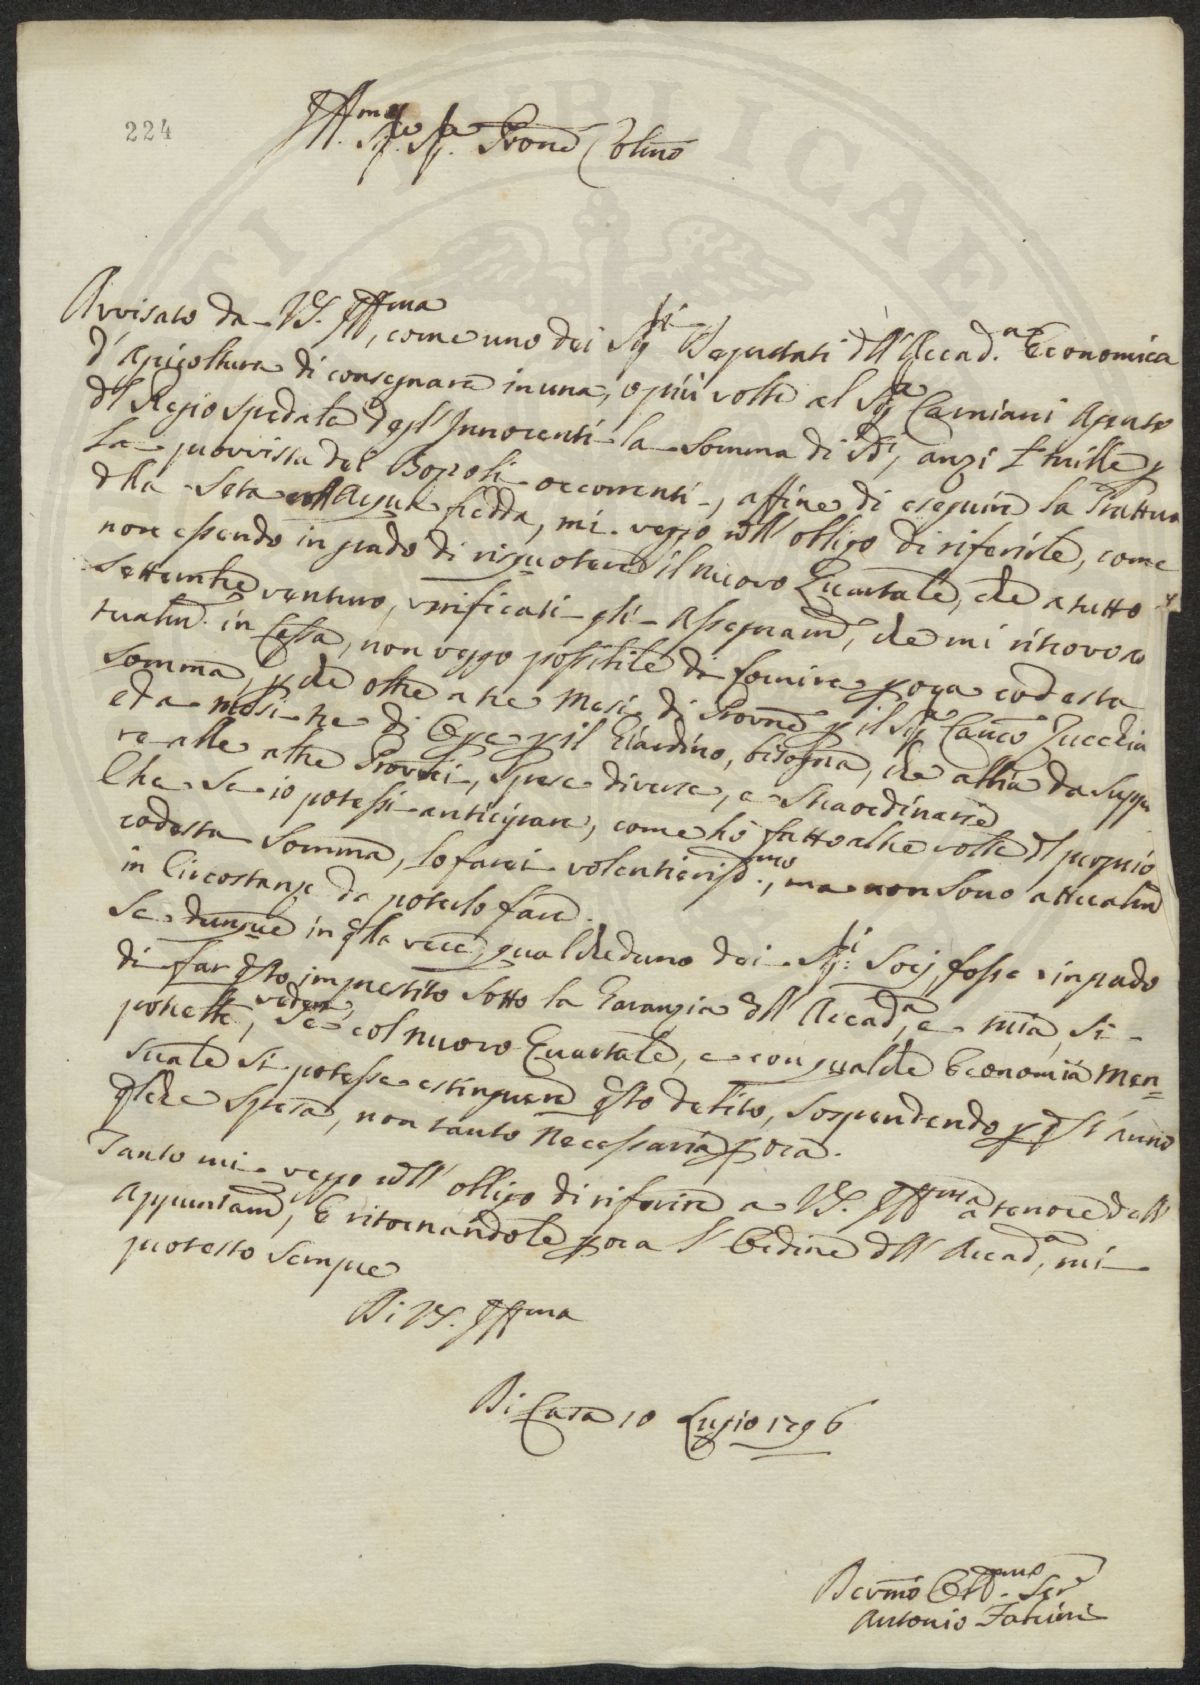 224
Ill.mo Sig.re Sig.re Prone Colmo
Avvisato da VS. Illma, come uno dei Sig.ri Deputati dell'Accad.a Economica
d'Agricoltura di consegnare in una, o più volte al Sig.e Camiani Agente
dl Regio spedale degl'Innocenti la somma di sdi, anzi £ mille p
la provvista dei Bozzoli occorrenti, affine di eseguire la Trattura
della Seta all'Acqua fredda, mi veggo nell'obligo di riferirle, come
non essendo in grado di risquotere il nuovo Quartale, che a tutto
Settembre venturo, verificati gli Assegnam.ti, che mi ritrovo at
tualm. in Cassa, non veggo possibile di fornire p ora codesta
somma, p che oltre a tre Mesi di Provne p il Sig.e Canco Zucchin
ed a mesi tre di Opre p il Giardino, bisogna, che abbia da suppli
re alle altre Provni, spese diverse, e straordinarie
Che se io potessi anticipare, come hò fatto altre volte dl proprio
codesta somma, lo farei volentieriss.mo, ma non sono attualm
in Circostanze da poterlo fare.
Se dunque in qlla vece, qualcheduno dei Sig.ri Socj fosse in grado
di far qsto imprestito sotto la Garanzia dll'Accad.a, e mia, si
potrebbe vedere, se col nuovo Quartale, e con qualche Economia Men=
suale si potesse estinguere qsto debito, sospendendo p qst'Anno
qlche spesa, non tanto necessaria p ora.
Tanto mi veggo nell'obligo di riferire a VS. Illma a tenore dell'
Appuntam, e ritornandole p ora l'Ordine dll'Accad.a, mi
protesto sempre
Di VS. Illma
Di Casa 10 Luglio 1796
Devmo Obb.mo Ser.e
Antonio Fabrini